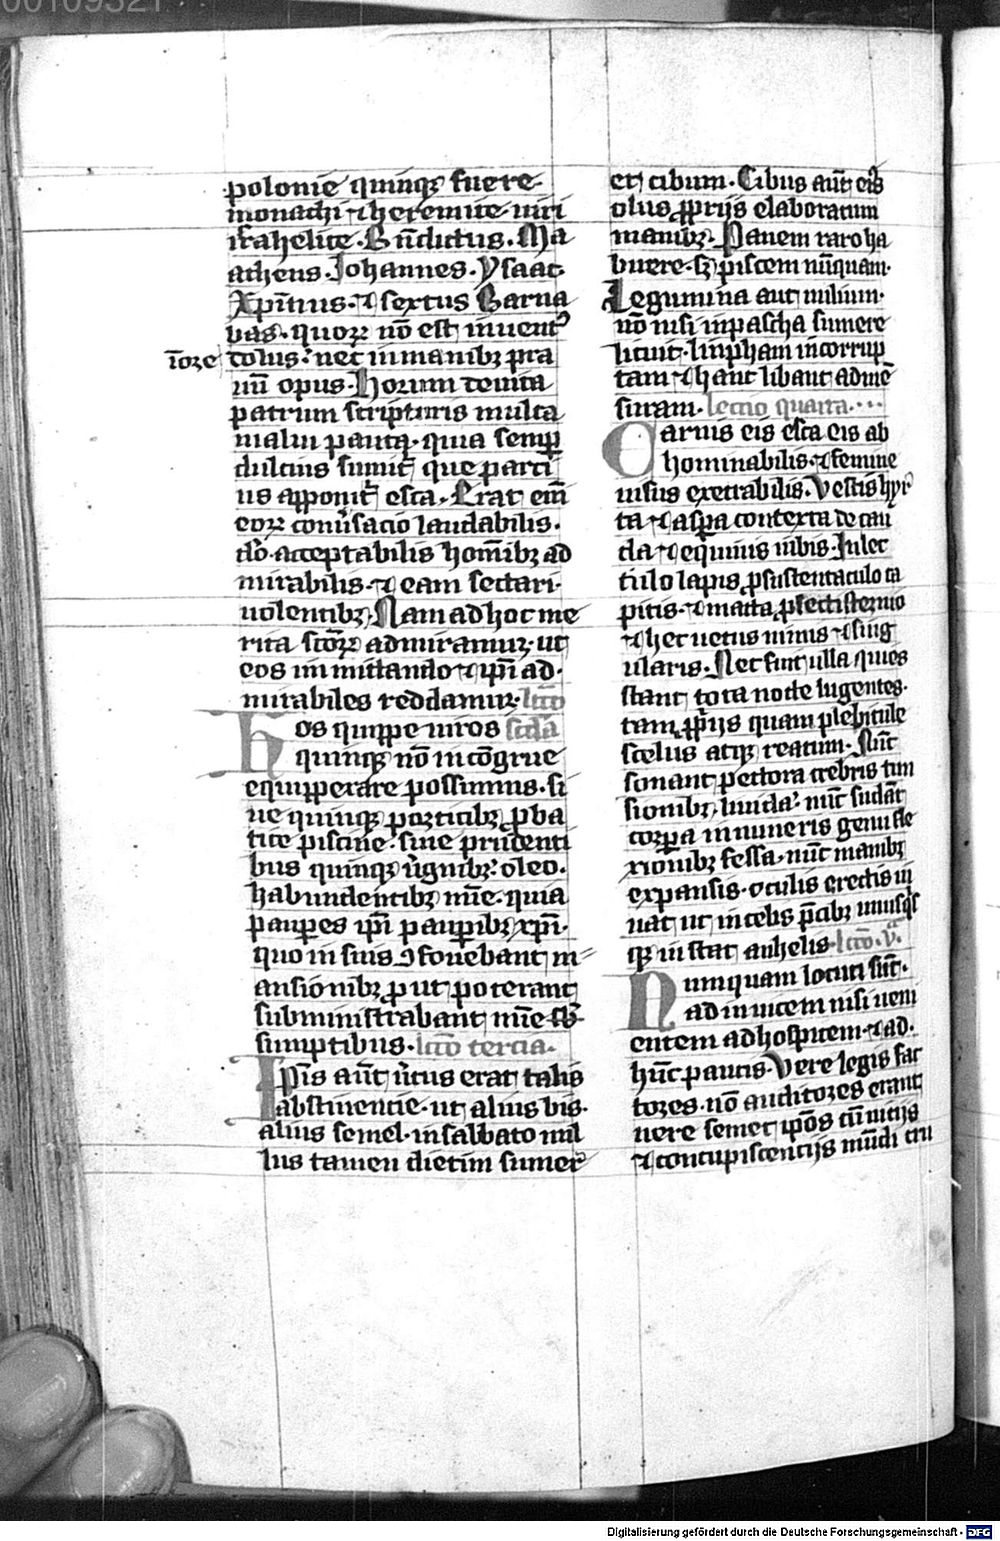 00109321
polonie quinqꝫ fuere·
monachi ⁊ heremite· uiri
israhelite· Bn̄dictus· Ma
atheus· Johannes· Ysaac·
Xp̄inus· ⁊ sextus Barna
bas· quoꝝ nō est inuent᷒
in ore
dolus· nec in manibꝫ pra
uū opus· Horum deuita
patrum scripturis multa
malui pauca· quia semꝑ
dulcius sumit̄ que parci
us apponit̄ esca· Erat eni̅
eoꝝ conuersacio laudabilis·
do̅ acceptabilis homībꝫ ad
mirabilis· ⁊ eam sectari·
uolentibꝫ Nam ad hoc me
rita sc̄oꝝ admiramur· ut
eos imittando ⁊ ip̄i ad·
mirabiles reddamur· lcc̄o
Hos quippe uiros sc̄da
quinqꝫ nō incōgrue
equipperare possumus· si
ue quinqꝫ porticibꝫ ꝓba
tice piscine· siue prudenti
bus quinqꝫ ûgnibꝫ· oleo·
habundentibꝫ mīe· quia
pauꝑes ip̄i pauꝑibꝫ xp̄i·
quo in suis ꝯfouebant m
ansionibꝫ ꝓ ut poterant
subministrabant mīe
sumptibus· lcc̄o tercia·
Ip̄is aūt ûtus erat talis
abstinencie· ut alius bis·
alius semel· in sabbato nul
lus tamen dietim sumer᷒
et cibum· Cibus aūt eis
olus ꝓprijs elaboratum
manibꝫ· Panem raro ha
buere· sꝫ piscem nūquam·
Legumina aut milium·
nō nisi in pascha sumere
licuit· limpham incorrup
tam ⁊ hanc libant ad mē
suram· leccio quarta·
Carnis eis esca eis ab
hominabilis· ⁊ femine
uisus execrabilis· Vestis hyr
ta ⁊ asꝑa contexta de cau
da ⁊ equinis uibis· In lec
tulo lapis ꝓ sustentaculo ca
pitis· ⁊ matta ꝓ lectisternio
⁊ hec uetus nimis ⁊ sing
ularis· Nec fuit ulla quies
stant tota nocte lugentes·
tam ꝓprijs quam plebicule
scelus atqꝫ reatum· Nūc
sonant pectora crebris tun
sionibꝫ liuida· nūc sudāt
corꝑa innumeris genu fle
xionibꝫ fessa· nūc manibꝫ
expansis· oculis erectis in
uat ut in celis p̄cibꝫ unusqs
qꝫ instat anhelis· lcc̄o· v̄
Numquam locuti sūt·
ad inuicem nisi ueni
entem ad hospitem· ⁊ ad·
hūc paucis· Vere legis fac
tores· nō auditores erant
uere semet ip̄os cū uicijs
⁊ concupiscencijs mūdi cru
Digitalisierung gefördert durch die Deutsche Forschungsgemeinschaft - DFG